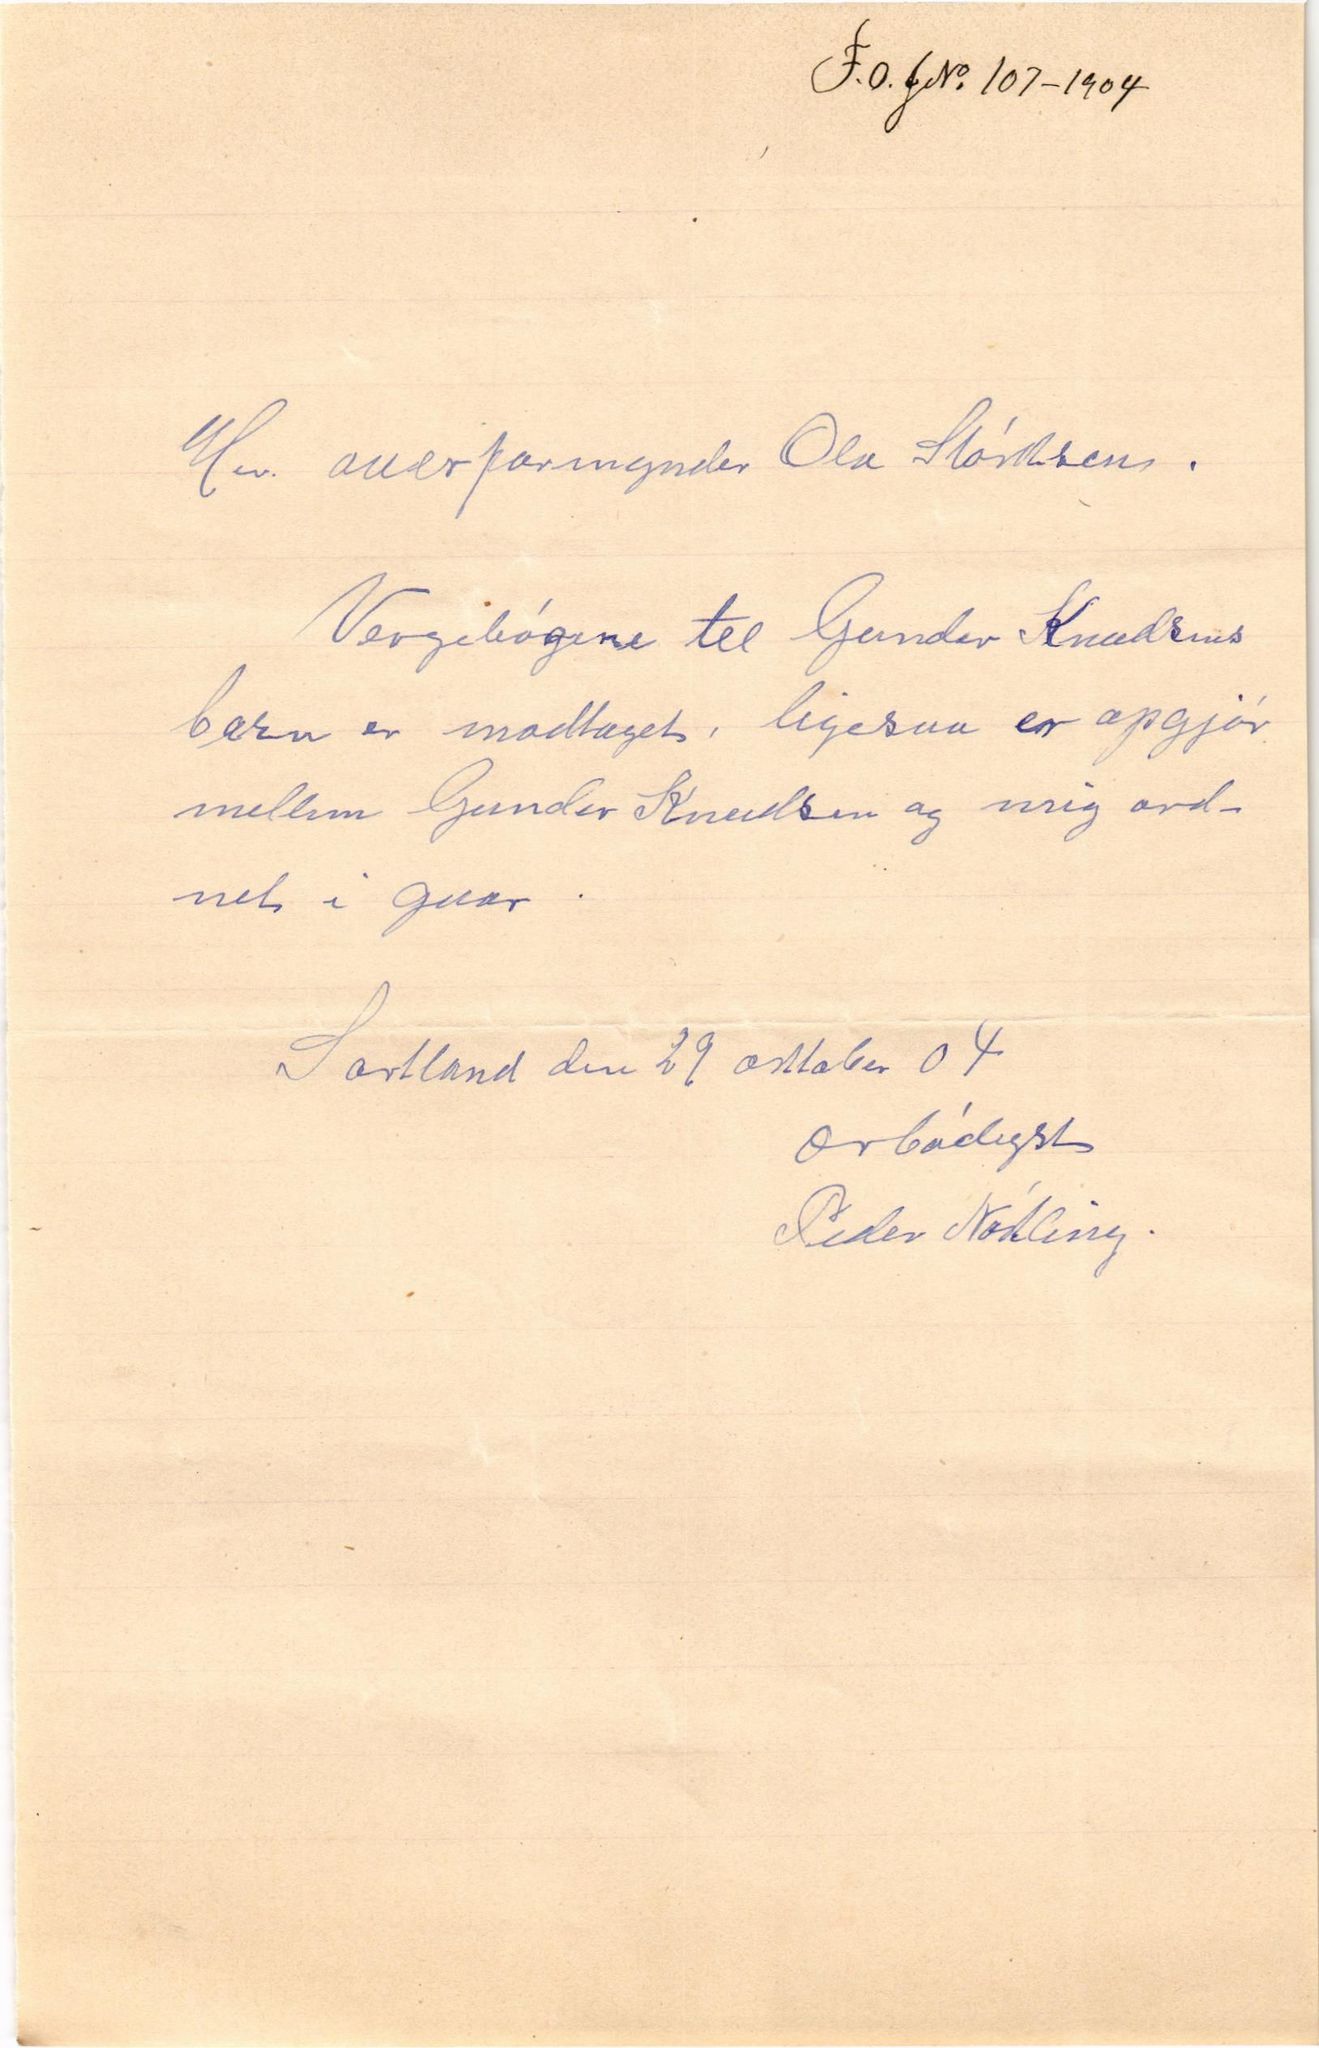 F.O. JNo. 107-1904
Hr. overformynder Ola Störksen.
Vergebögene til Gunder Knudsens
barn er modtaget, ligesaa er opgjör
mellem Gunder Knudsen og mig ord-
net i gaar.
Sortland den 29 oktober 04
ærbödigst
Peder Nödling.